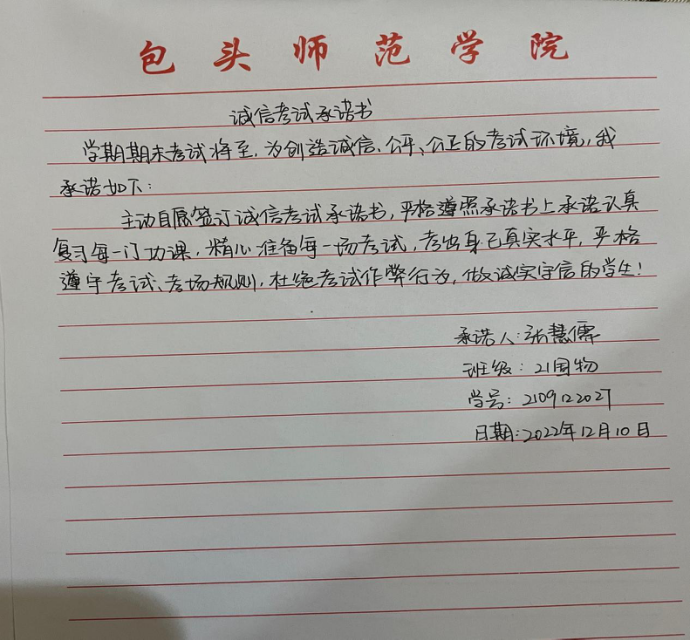 包头师范学院
诚信考试承诺书
学期期末考试将至，为创造诚信、公平、公正的考试环境，我
承诺如下：
主动自愿签订诚信考试承诺书，严格遵照承诺书上承诺认真
复习每一门功课，精心准备每一场考试，考出自己真实水平，严格
遵守考试、考场规则，杜绝考试作弊行为，做诚实守信的学生！
承诺人：张慧儒
班级：21国物
学号：2109122027
日期：2022年12月10日